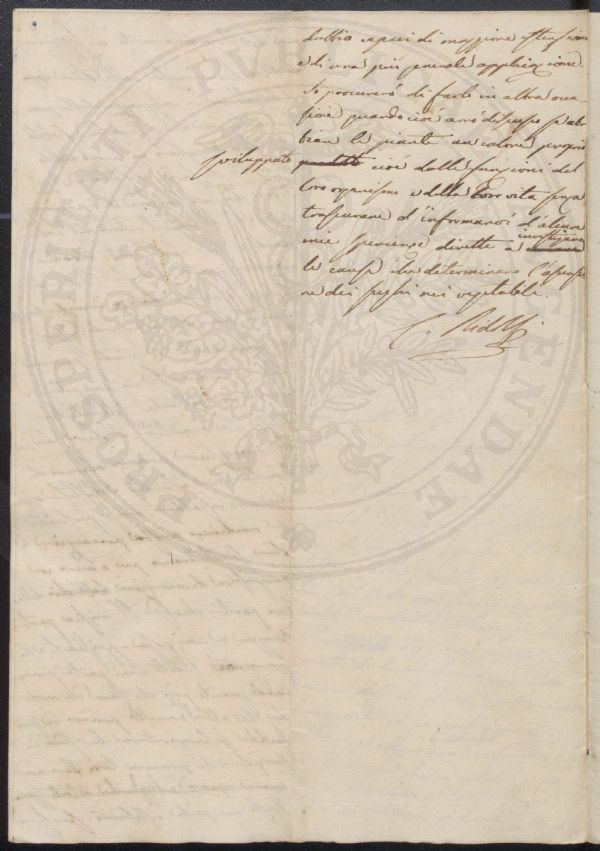 dubbio capaci di maggiore estensione
e di una più generale applicazione.
Io procurerò di farli in altra occa-
sione quando cioè avrò discusso se ab-
bian le piante un calore proprio
sviluppato cioè dalle funzioni del
loro organismo e della loro vita senza
trascurare d'informarvi d'alcune
mie sperienze dirette a investigare
le cause che determinano l'ascensio-
ne dei sughi nei vegetabili.
C. Ridolfi
PROSPERITATI PUBLICAE AUGENDAE